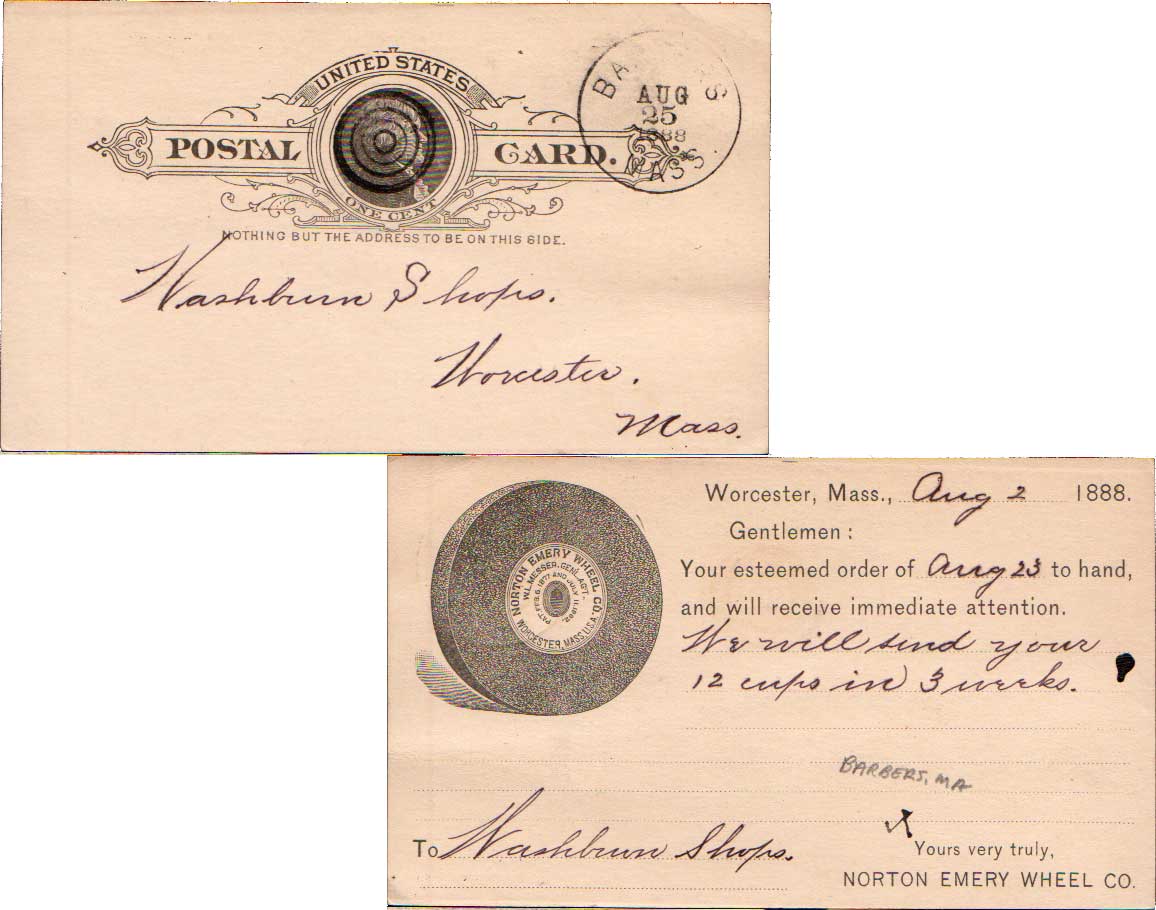 UNITED STATES
POSTAL CARD.
ONE CENT
NOTHING BUT THE ADDRESS TO BE ON THIS SIDE.
AUG
25
1888
MASS.
Washburn Shops.
Worcester.
Mass.
Worcester, Mass., Aug 2 1888.
Gentlemen :
Your esteemed order of Aug 23 to hand,
and will receive immediate attention.
We will send your
12 cups in 3 weeks.
NORTON EMERY WHEEL CO.
W.L. MESSER, GEN'L. AGT.
PAT. FEB. 6. 1877 AND JULY 11. 1882.
WORCESTER, MASS. U.S.A.
BARBERS, MA
To Washburn Shops.
Yours very truly,
NORTON EMERY WHEEL CO.